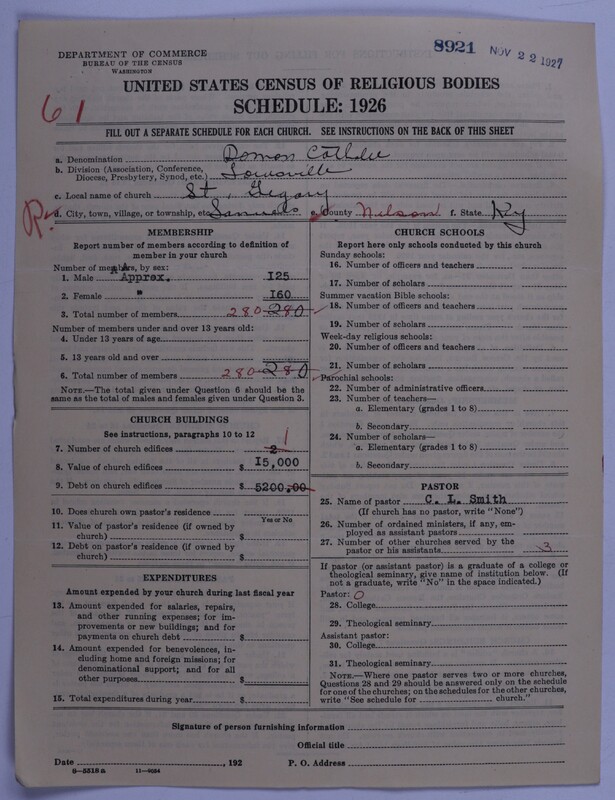 DEPARTMENT OF COMMERCE
BUREAU OF THE CENSUS
WASHINGTON
8921 NOV 22 1927
UNITED STATES CENSUS OF RELIGIOUS BODIES
SCHEDULE: 1926
61
FILL OUT A SEPARATE SCHEDULE FOR EACH CHURCH. SEE INSTRUCTIONS ON THE BACK OF THIS SHEET
a. Denomination
b. Division (Association, Conference, Diocese, Presbytery, Synod, etc.) Louisville
c. Local name of church St. Gegory
R.
d. City, town, village, or township, etc. Samuels e. County Nelson f. State Ky
MEMBERSHIP
Report number of members according to definition of
member in your church
Number of members, by sex:
1. Male Approx. 125
2. Female " 160
3. Total number of members 280 280
Number of members under and over 13 years old:
4. Under 13 years of age
5. 13 years old and over
6. Total number of members 280 280
NOTE.—The total given under Question 6 should be the
same as the total of males and females given under Question 3.
CHURCH BUILDINGS
See instructions, paragraphs 10 to 12
7. Number of church edifices 2 1
8. Value of church edifices $ 15,000
9. Debt on church edifices $ 5200.00
10. Does church own pastor's residence
Yes or No
11. Value of pastor's residence (if owned by
church) $
12. Debt on pastor's residence (if owned by
church) $
EXPENDITURES
Amount expended by your church during last fiscal year
13. Amount expended for salaries, repairs,
and other running expenses; for im-
provements or new buildings; and for
payments on church debt $
14. Amount expended for benevolences, in-
cluding home and foreign missions; for
denominational support; and for all
other purposes $
15. Total expenditures during year $
CHURCH SCHOOLS
Report here only schools conducted by this church
Sunday schools:
16. Number of officers and teachers
17. Number of scholars
Summer vacation Bible schools:
18. Number of officers and teachers
19. Number of scholars
Week-day religious schools:
20. Number of officers and teachers
21. Number of scholars
Parochial schools:
22. Number of administrative officers
23. Number of teachers—
a. Elementary (grades 1 to 8)
b. Secondary
24. Number of scholars—
a. Elementary (grades 1 to 8)
b. Secondary
PASTOR
25. Name of pastor C. L. Smith
(If church has no pastor, write "None")
26. Number of ordained ministers, if any, em-
ployed as assistant pastors
27. Number of other churches served by the
pastor or his assistants 3
If pastor (or assistant pastor) is a graduate of a college or
theological seminary, give name of institution below. (If
not a graduate, write "No" in the space indicated.)
Pastor: 0
28. College
29. Theological seminary
Assistant pastor:
30. College
31. Theological seminary
NOTE.—Where one pastor serves two or more churches,
Questions 28 and 29 should be answered only on the schedule
for one of the churches; on the schedules for the other churches,
write "See schedule for church."
Signature of person furnishing information
Official title
Date , 192 P. O. Address
9-5318a 11-9034